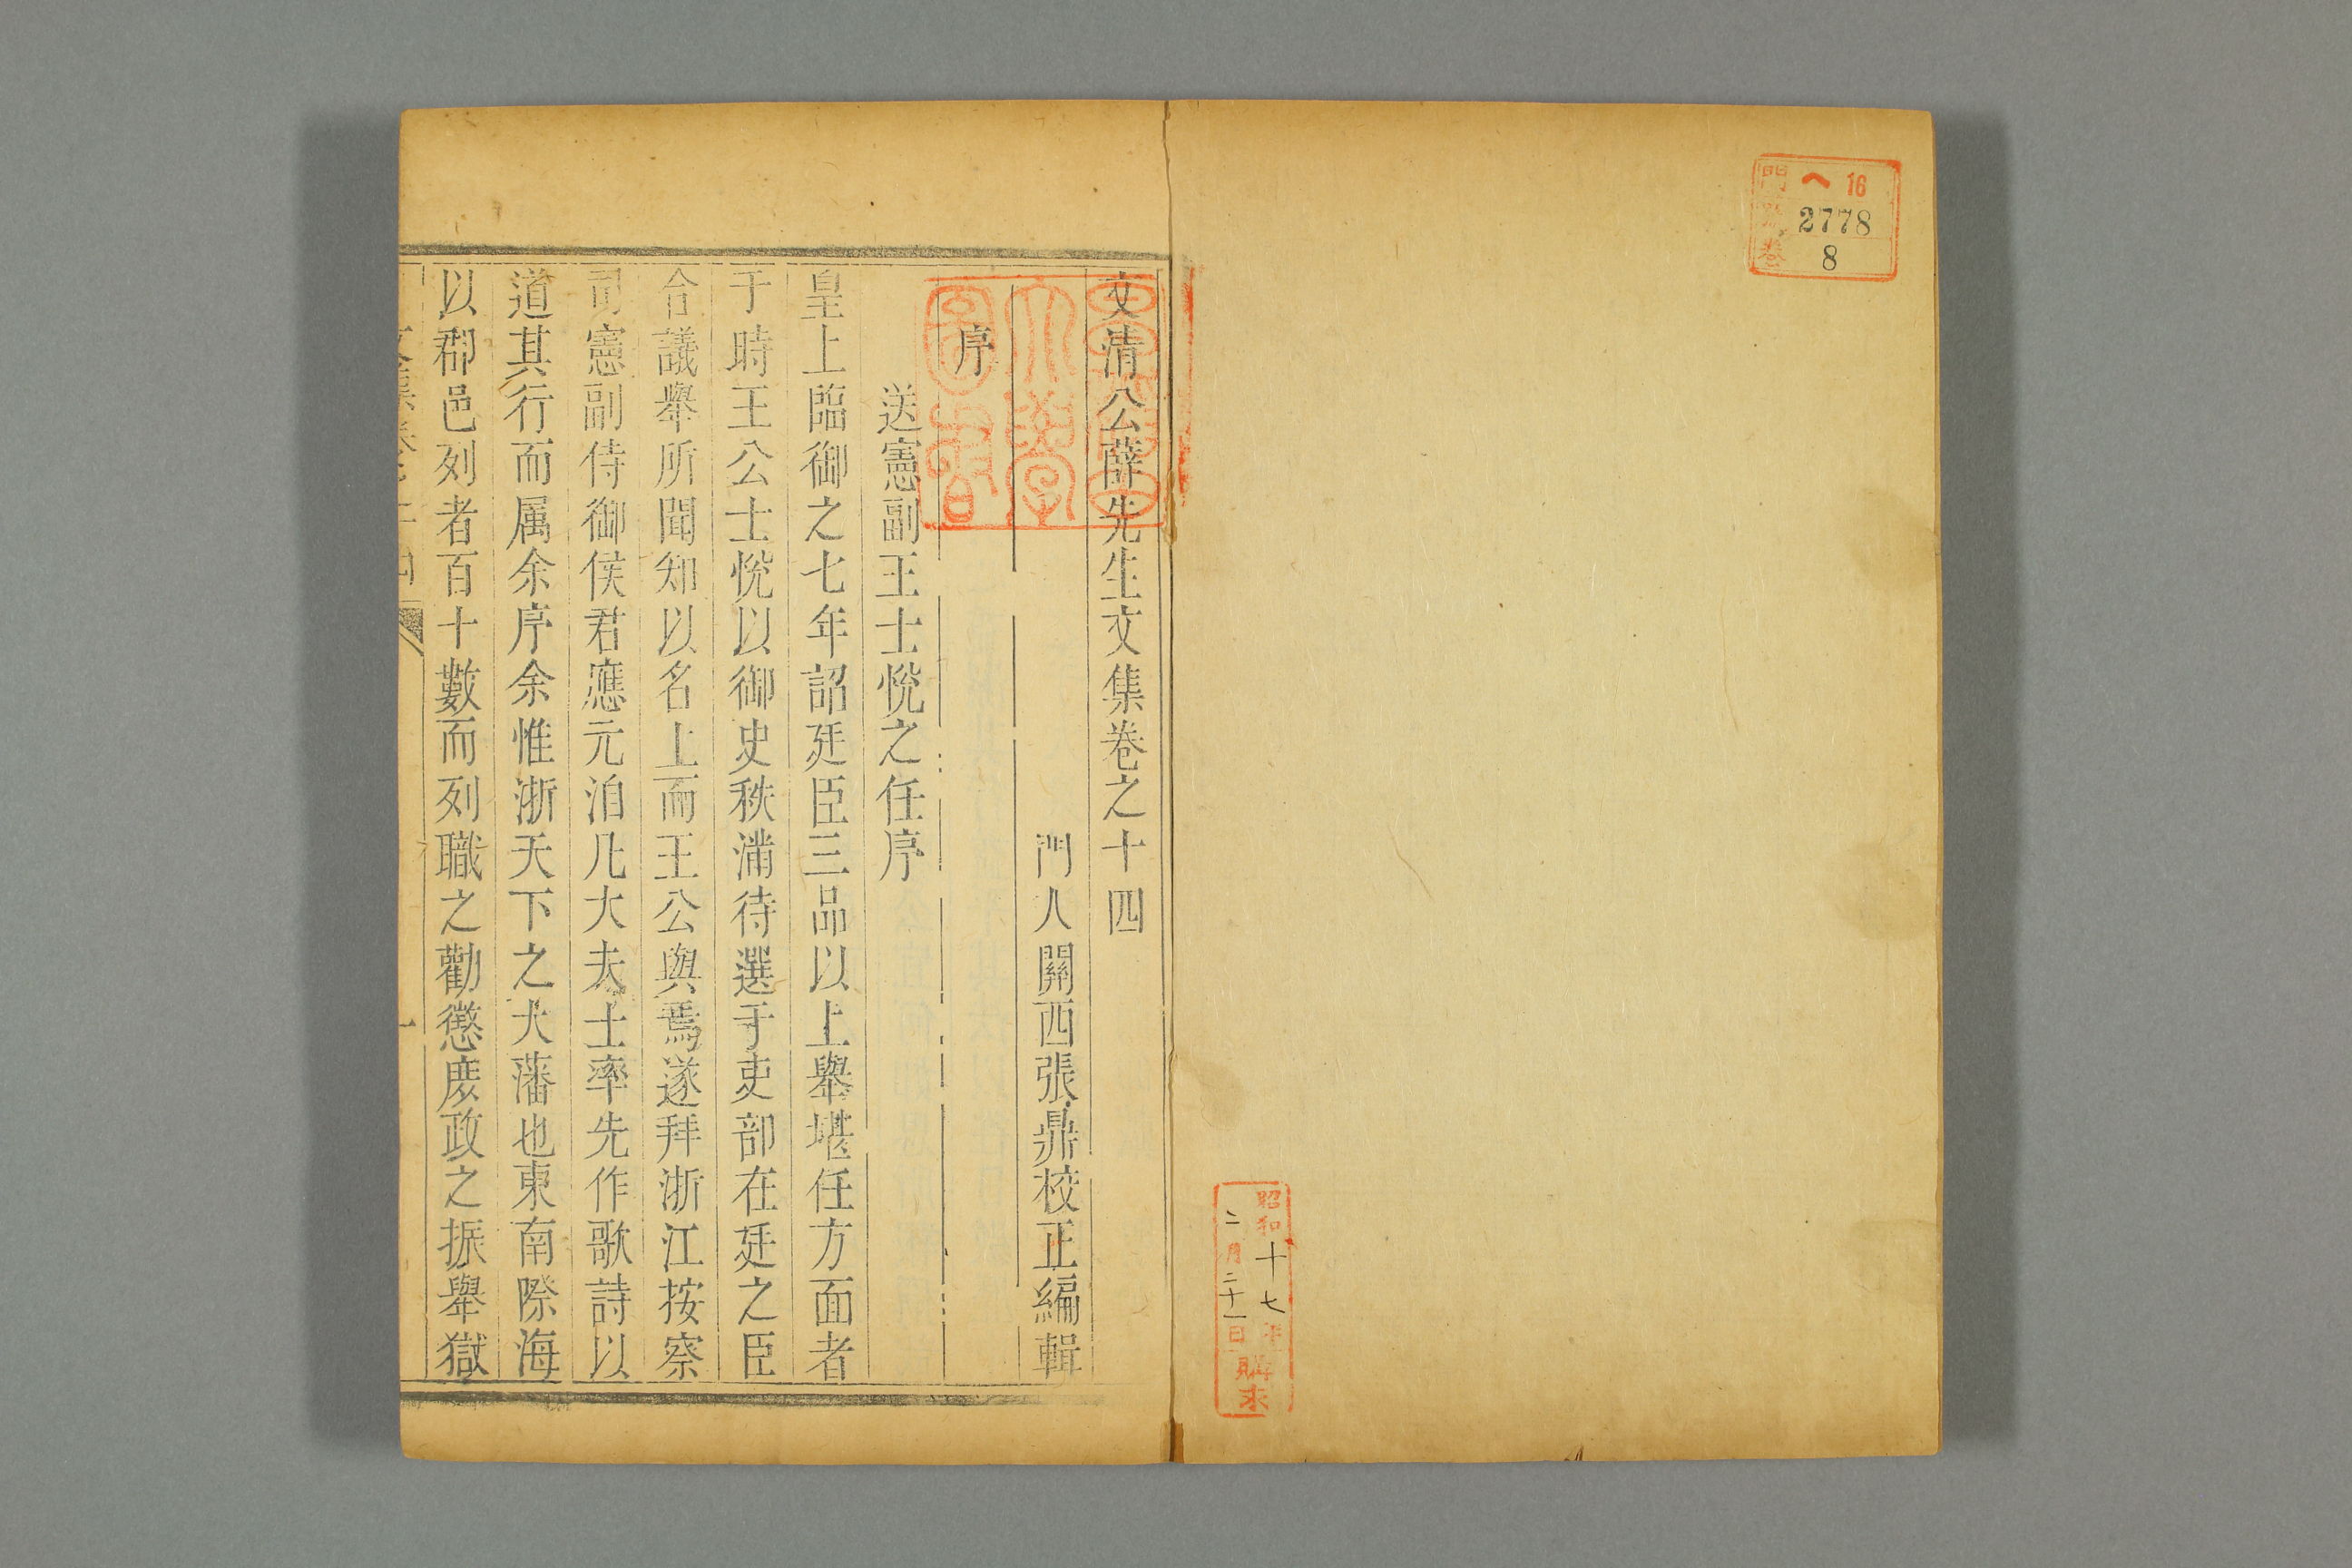 門 ヘ 16
號 2778
卷 8
昭和十七年
二月二十一日
購求
文清公薛先生文集卷之十四
門人關西張鼎校正編輯
序
送憲副王士悅之任序
皇上臨御之七年詔廷臣三品以上舉堪任方面者
于時王公士悅以御史秩滿待選于吏部在廷之臣
合議舉所聞知以名上而王公與焉遂拜浙江按察
司憲副侍御侯君應元洎凡大夫士率先作歌詩以
道其行而属余序余惟浙天下之大藩也東南際海
以郡邑列者百十數而列職之勸懲庶政之振舉獄